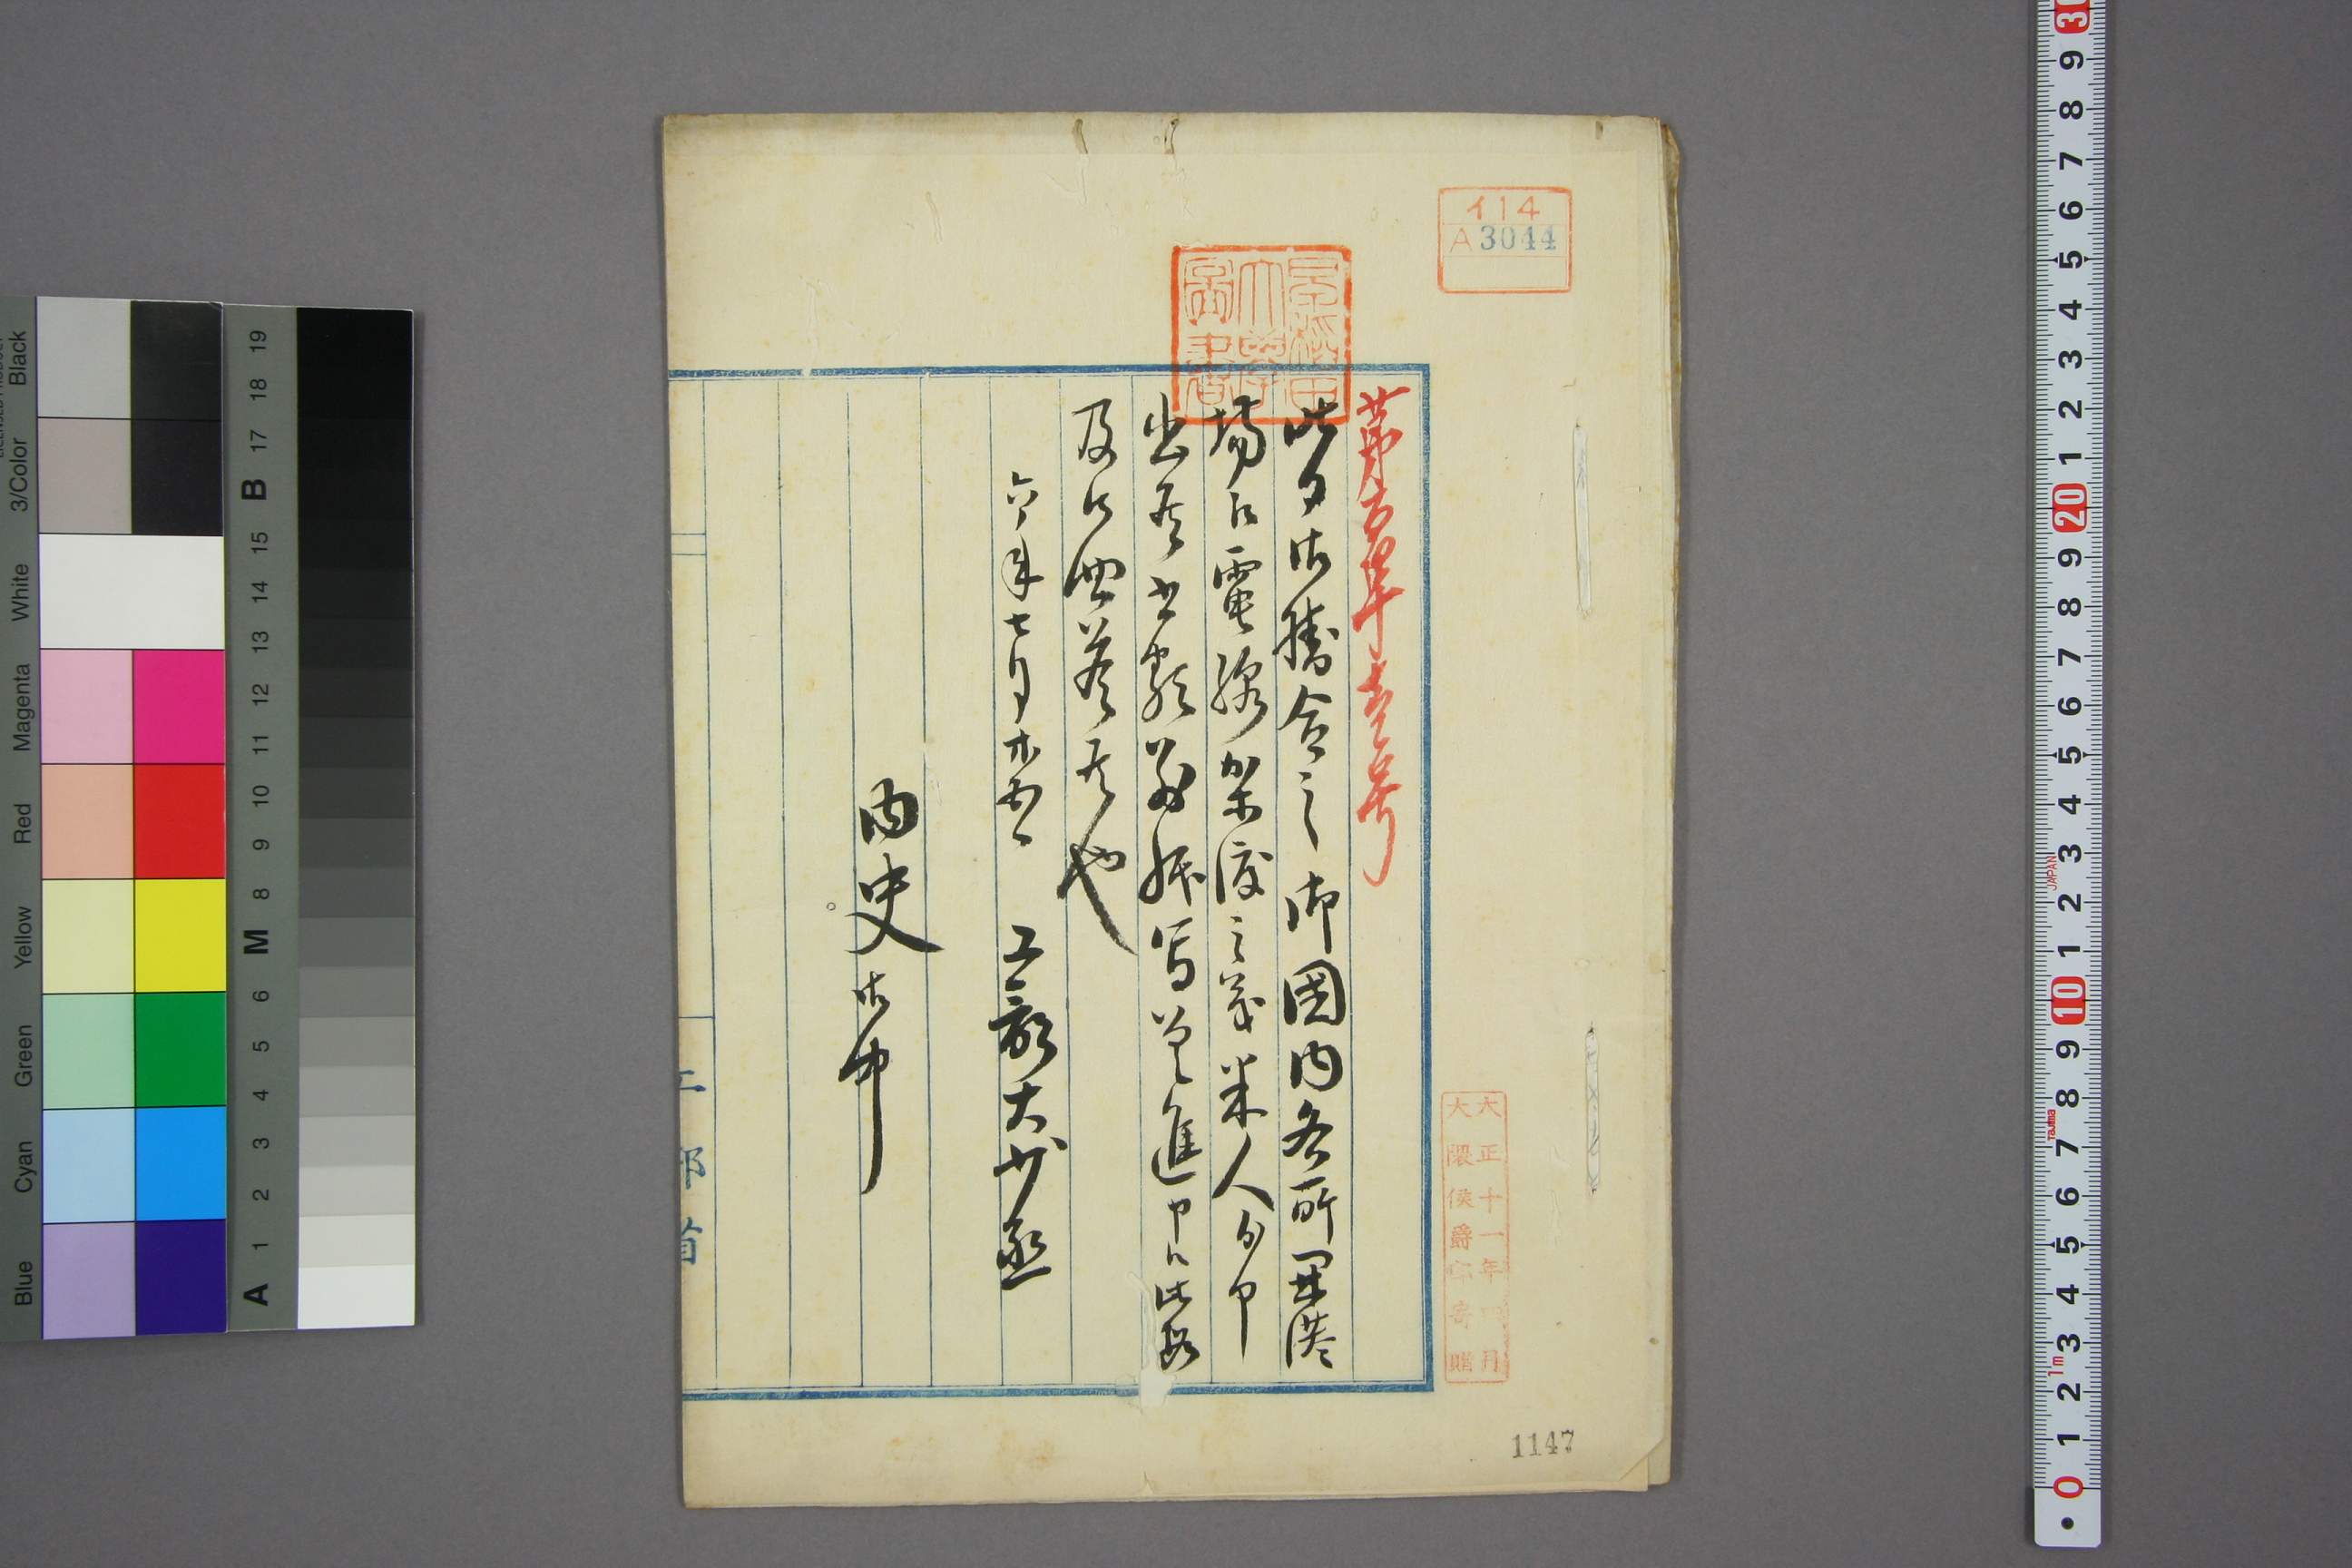 イ14
A 3044
早稲田
大學
圖書
大正十一年四月
大隈侯爵家寄贈
御國内各所開港
場江電線架設之義米人ゟ申
出候書類別紙写差進申候此段
及御回答候也
六年七月廿五日 工部大少丞
内史御中
工部省
1147
Black
3/Color
White
Magenta
Red
Yellow
Green
Cyan
Blue
19
18
17
B
15
14
13
12
11
10
9
8
M
6
5
4
3
2
1
A
30
9
8
7
6
5
4
3
2
1
20
9
8
7
6
5
4
3
JAPAN
2
1
10
9
8
Tajima
7
6
5
4
3
1m
2
1
0